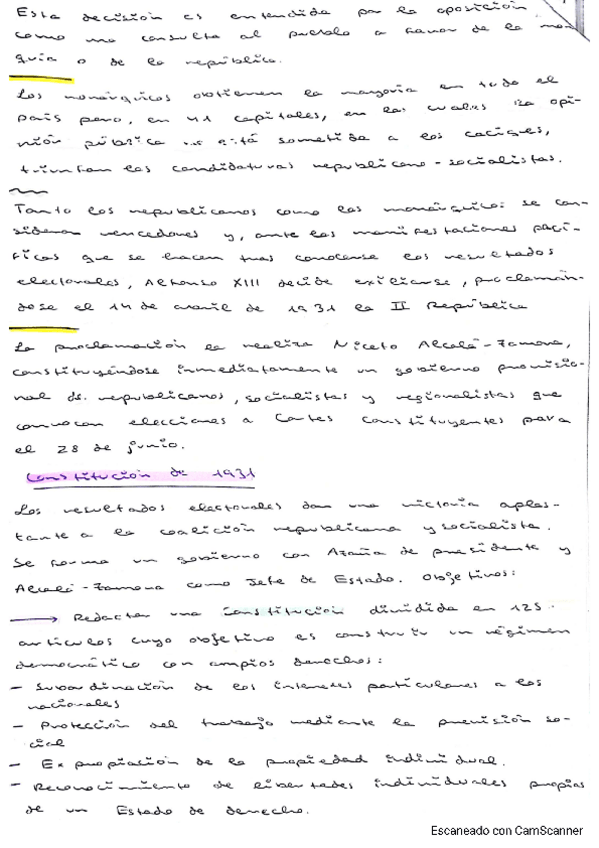 Esta decisión es entendida por la oposición
como una consulta al pueblo a favor de la mon
quía o de la república.
Los monárquicos obtienen la mayoría en todo el
país pero, en 41 capitales, en las cuales la opi-
nión pública no está sometida a los caciques,
triunfan las candidaturas republicano-socialistas.
Tanto los republicanos como los monárquicos se con-
sideran vencedores y, ante las manifestaciones pací-
ficas que se hacen tras conocerse los resultados
electorales, Alfonso XIII decide exiliarse, proclamán-
dose el 14 de abril de 1931 la II República
La proclamación la realiza Niceto Alcalá-Zamora,
constituyéndose inmediatamente un gobierno provisio-
nal de republicanos, socialistas y regionalistas que
convocan elecciones a Cortes Constituyentes para
el 28 de junio.
Constitución de 1931
Los resultados electorales dan una victoria aplas-
tante a la coalición republicana y socialista.
Se forma un gobierno con Azaña de presidente y
Alcalá-Zamora como Jefe de Estado. Objetivos:
→ Redactar una Constitución dividida en 125
artículos cuyo objetivo es construir un régimen
democrático con amplios derechos:
- Subordinación de los intereses particulares a los
nacionales
- Protección del trabajo mediante la previsión so-
cial
- Expropiación de la propiedad individual.
- Reconocimiento de libertades individuales propias
de un Estado de derecho.
Escaneado con CamScanner